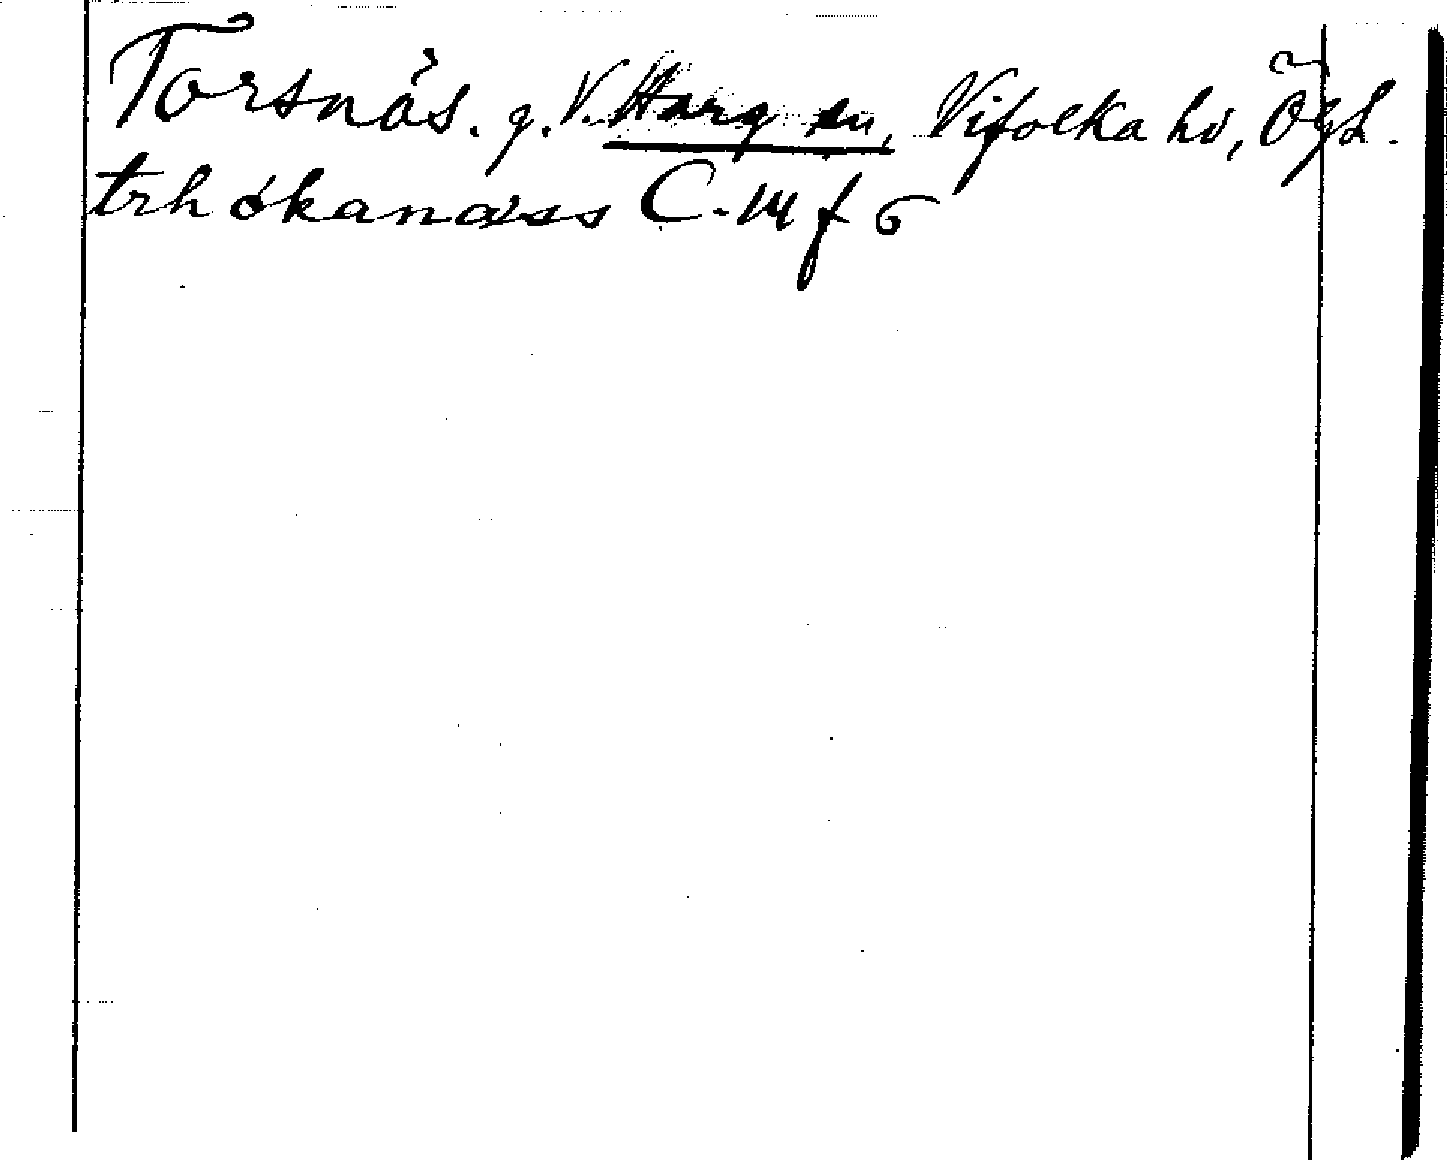 Torsnäs. g. V. Harg sn, Vifolka hd, Ögl.
trhókanæss C. 14 f 6